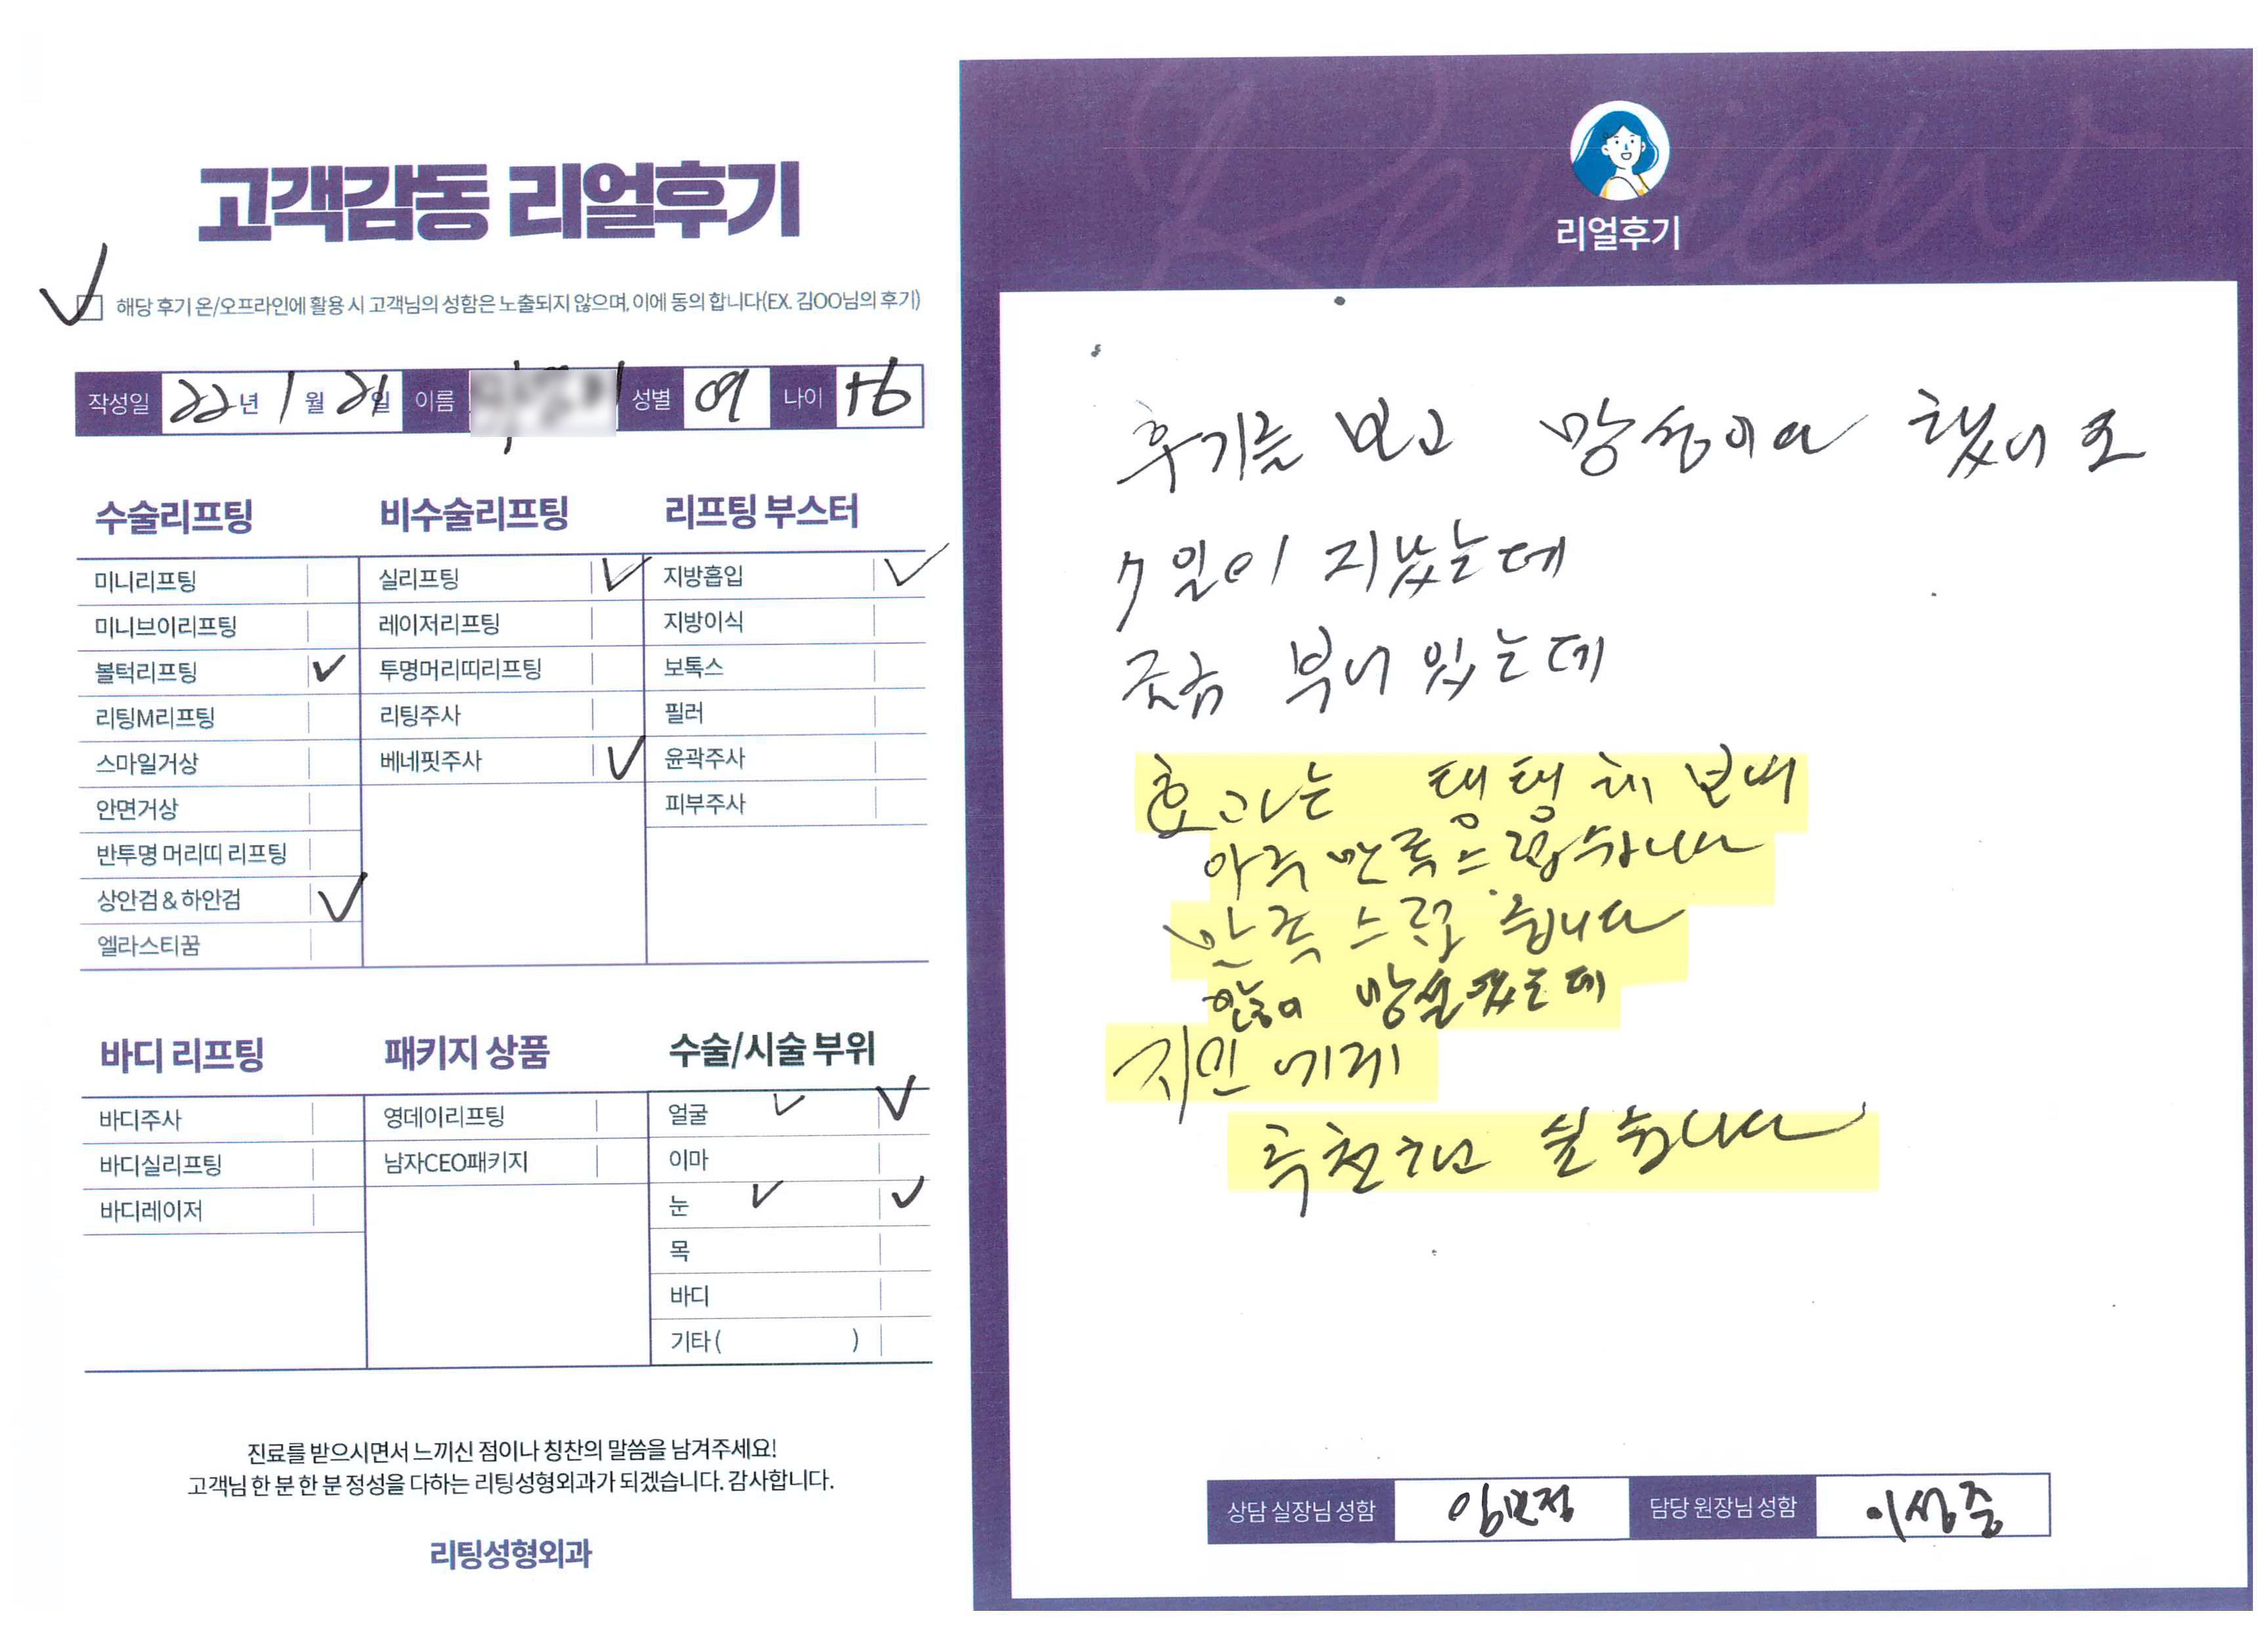 고객감동 리얼후기
해당 후기 온/오프라인에 활용 시 고객님의 성함은 노출되지 않으며, 이에 동의 합니다(EX. 김OO님의 후기)
작성일 22년 1월 21일 이름 성별 여 나이
수술리프팅
미니리프팅
미니브이리프팅
볼턱리프팅
리팅M리프팅
스마일거상
안면거상
반투명 머리띠 리프팅
상안검 & 하안검
엘라스티꿈
비수술리프팅
실리프팅
레이저리프팅
투명머리띠리프팅
리팅주사
베네핏주사
리프팅 부스터
지방흡입
지방이식
보톡스
필러
윤곽주사
피부주사
바디 리프팅
바디주사
바디실리프팅
바디레이저
패키지 상품
영데이리프팅
남자CEO패키지
수술/시술 부위
얼굴
이마
눈
목
바디
기타 ( )
진료를 받으시면서 느끼신 점이나 칭찬의 말씀을 남겨주세요!
고객님 한 분 한 분 정성을 다하는 리팅성형외과가 되겠습니다. 감사합니다.
리팅성형외과
Review
리얼후기
후기를 보고 했어요
7일이 지났는데
조금 부어있는데
효과는 탱탱해 보여
아주 만족스럽습니다
만족스럽습니다
많이 망설였는데
지인에게
추천하고 싶습니다
상담 실장님 성함 임민정 담당 원장님 성함 이상준